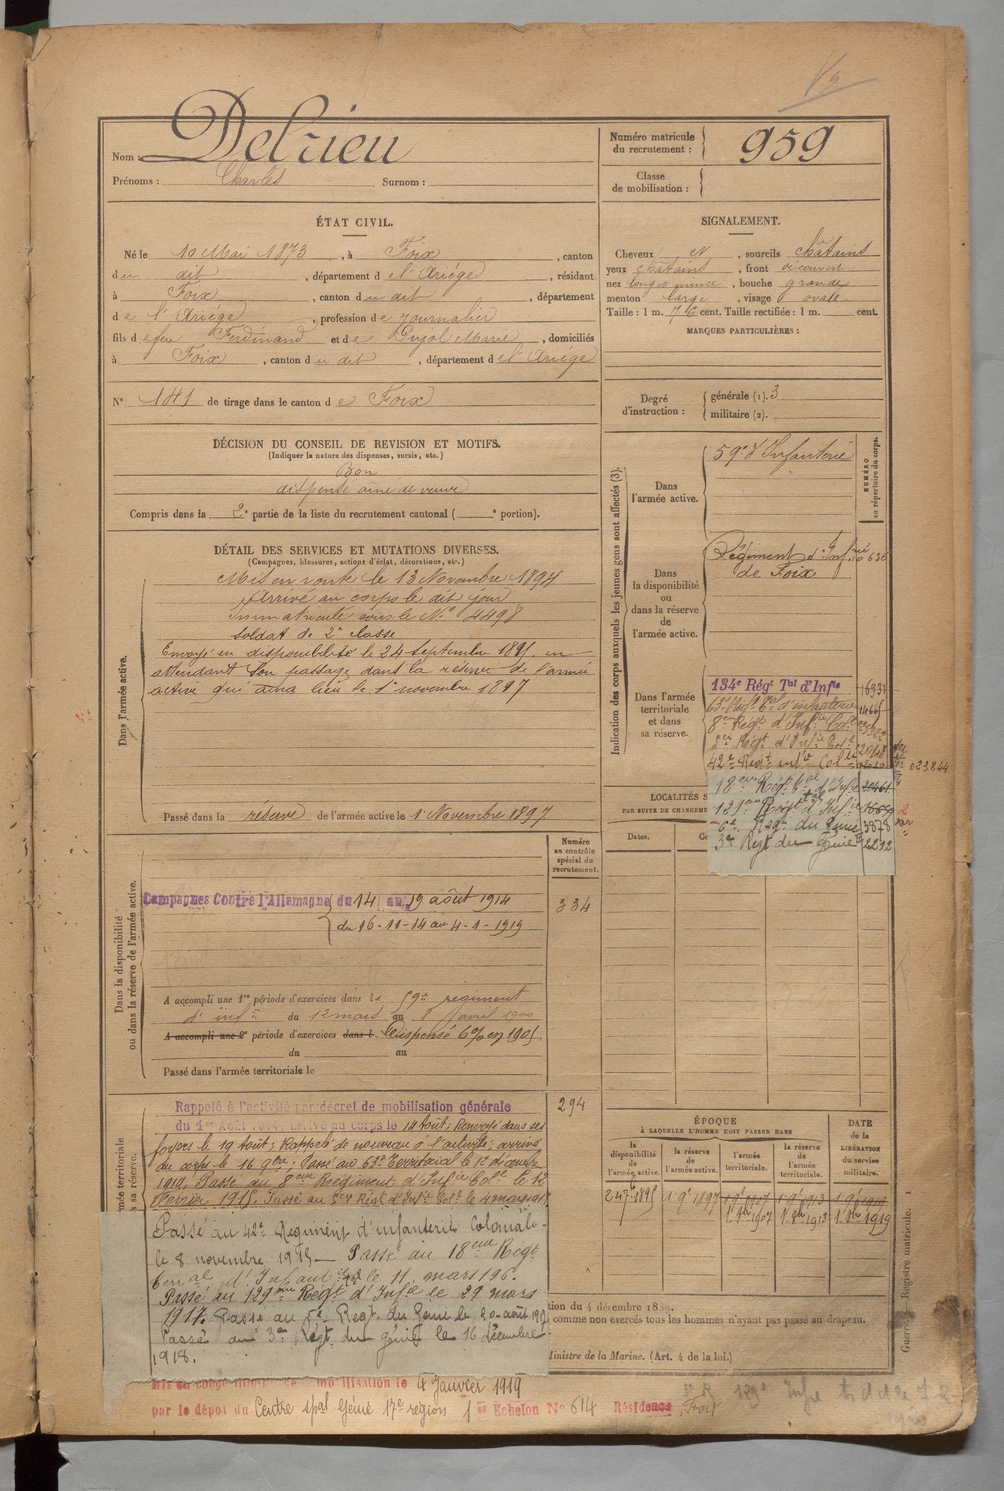 Nom : Delrieu
Prénoms : Charles Surnom :
Numéro matricule
du recrutement : 959
Classe
de mobilisation :
ÉTAT CIVIL.
Né le 10 Mai 1873, à Foix, canton
du dit, département de l'Ariège, résidant
à Foix, canton du dit, département
de l'Ariège, profession de journalier
fils de feu Ferdinand et de Pujol Marie, domiciliés
à Foix, canton du dit, département de l'Ariège
N° 141 de tirage dans le canton de Foix
SIGNALEMENT.
Cheveux et, sourcils châtains
yeux châtains, front découvert
nez long & mince, bouche grande
menton large, visage ovale
Taille : 1 m. cent. Taille rectifiée : 1 m. cent.
MARQUES PARTICULIÈRES :
Degré
d'instruction :
générale (1). 3
militaire (2).
DÉCISION DU CONSEIL DE REVISION ET MOTIFS.
(Indiquer la nature des dispenses, sursis, etc.)
Bon
dispensé ainé de veuve
Compris dans la 2e partie de la liste du recrutement cantonal ( e portion).
DÉTAIL DES SERVICES ET MUTATIONS DIVERSES.
(Campagnes, blessures, actions d'éclat, décorations, etc.)
Dans l'armée active.
Mis en route le 13 Novembre 1894
Arrivé au corps le dit jour
immatriculé sous le N° 4498
soldat de 2e classe
Envoyé en disponibilité le 24 septembre 1895 en
attendant son passage dans la réserve de l'armée
active qui aura lieu le 1er novembre 1897
Passé dans la réserve de l'armée active le 1er Novembre 1897
Indication des corps auxquels les jeunes gens sont affectés (3).
NUMÉRO
au répertoire du corps.
Dans
l'armée active.
59e d'Infanterie
Dans
la disponibilité
ou
dans la réserve
de
l'armée active.
Régiment d'Infrie 636
de Foix
Dans l'armée
territoriale
et dans
sa réserve.
134e Régt Tal d'Infie 16931
63e d'infanterie
8e Régt d'Infie Cole
Régt d'Infie Cole
42e Régt infie Colle
023844
18eme Régt d'Infie 20461
129eme Régt d'Infie
6e Régt du Génie 3878
3e Régt du Génie 2212
LOCALITÉS S
PAR SUITE DE CHANGEME
Dates.
Dans la disponibilité
ou dans la réserve de l'armée active.
Numéro
au contrôle
spécial du
recrutement.
334
Campagnes Contre l'Allemagne du 14 au 19 août 1914
du 16-11-14 au 4-1-1919
A accompli une 1re période d'exercices dans le 59e régiment
d'infie du 12 mars au 8 avril 1900
A accompli une 2e période d'exercices dans l Dispensé 6% en 1905
du au
Passé dans l'armée territoriale le
294
Rappelé à l'activité par décret de mobilisation générale
du 1er Août 1914, arrivé au corps le 14 août; Renvoyé dans ses
foyers le 19 août; Rappelé de nouveau à l'activité; arrivé
au corps le 16 9bre; Passé au 63e Territorial le 1er décembre
1914. Passé au 8eme Régiment d'Infie Cole le 12
Février 1915. Passé au Régt d'Infie Cole le 4 mars 1915
Passé au 42e Regiment d'infanterie Coloniale
le 8 novembre 1915 — Passé au 18eme Régt
d'Infanterie le 11 mars 196.
Passé au 129eme Régt d'Infie le 29 mars
1917. Passé au Régt du Génie le 20 août 1917
Passé au 3e Régt du génie le 16 Décembre
1918.
Mis en congé de mobilisation le 4 Janvier 1919
par le dépot du Centre spal Génie 17e région 1er Echelon N° 614 Résidence Foix
ÉPOQUE
À LAQUELLE L'HOMME DOIT PASSER DANS
DATE
de la
LIBÉRATION
du service
militaire.
la
disponibilité
de
l'armée active.
la réserve
de
l'armée active.
l'armée
territoriale.
la réserve
de
l'armée
territoriale.
24 7bre 1895 1 9bre 1897 1 9bre 1907 1 9bre 1913 1 9bre 1919
1 8bre 1907 1 8bre 1913 1 8bre 1919
tion du 4 décembre 1889.
comme non exercés tous les hommes n'ayant pas passé au drapeau.
Ministre de la Marine. (Art. 4 de la loi.)
Registre matricule. 1